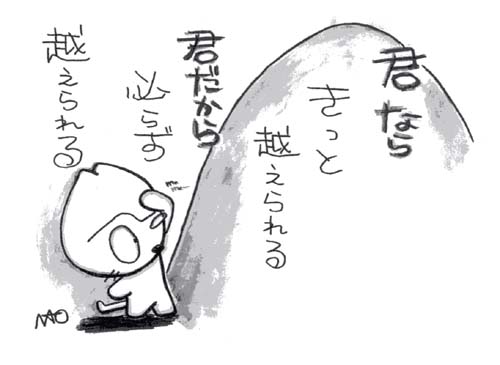 君なら
きっと
越えられる
君だから
必らず
越えられる
NAO